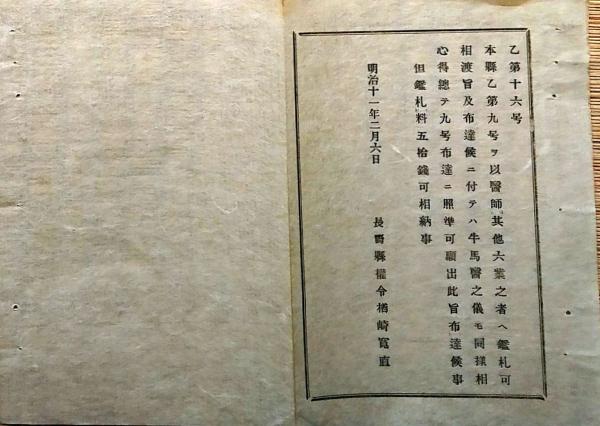 乙第十六号
本縣乙第九号ヲ以醫師其他六業之者ヘ鑑札可
相渡旨及布達候ニ付テハ牛馬醫之儀モ同樣相
心得總テ九号布達ニ照準可願出此旨布達候事
但鑑札料五拾錢可相納事
明治十一年二月六日
長野縣權令楢崎寬直